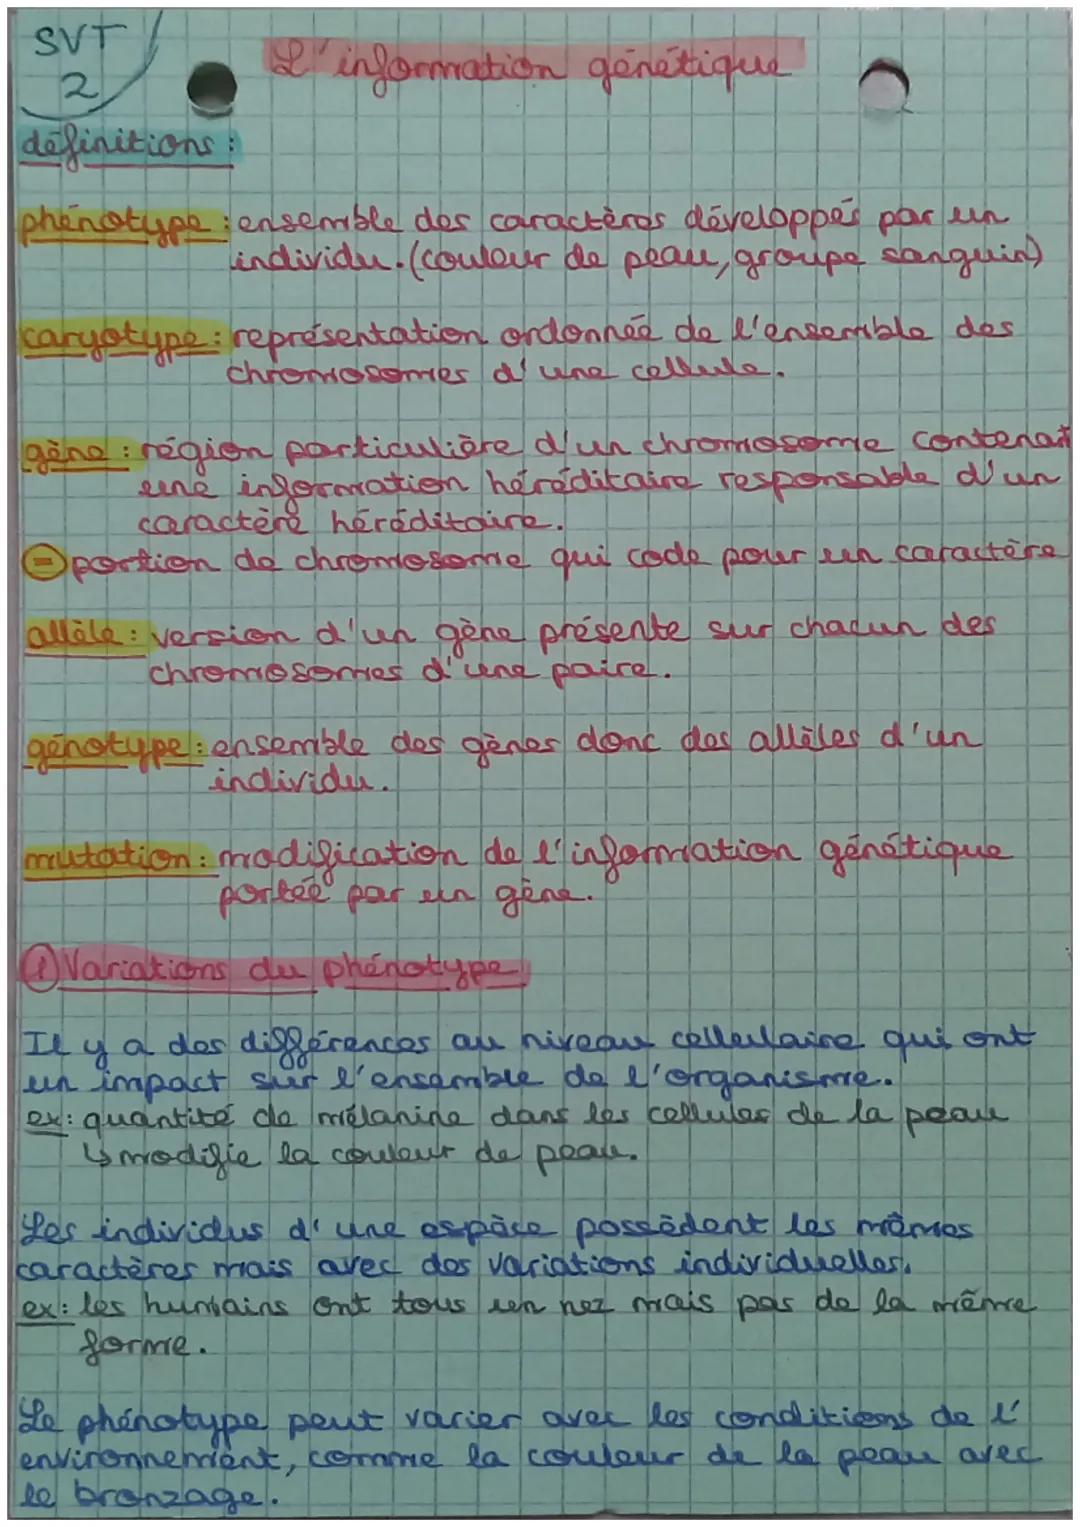 SVT
2
L'information génétique
définitions :
phénotype : ensemble des caractères développés par un
individu. (couleur de peau, groupe sanguin)
caryotype : représentation ordonnée de l'ensemble des
chromosomes d'une cellule.
gène : région particulière d'un chromosome contenant
une information héréditaire responsable d'un
caractère héréditaire.
= portion de chromosome qui code pour un caractère
allèle : version d'un gène présente sur chacun des
chromosomes d'une paire.
génotype : ensemble des gènes donc des allèles d'un
individu.
mutation : modification de l'information génétique
portée par un gène.
① Variations du phénotype
Il y a des différences au niveau cellulaire qui ont
un impact sur l'ensemble de l'organisme.
ex : quantité de mélanine dans les cellules de la peau
↳ modifie la couleur de peau.
Les individus d'une espèce possèdent les mêmes
caractères mais avec des variations individuelles.
ex : les humains ont tous un nez mais pas de la même
forme.
Le phénotype peut varier avec les conditions de l'
environnement, comme la couleur de la peau avec
le bronzage.